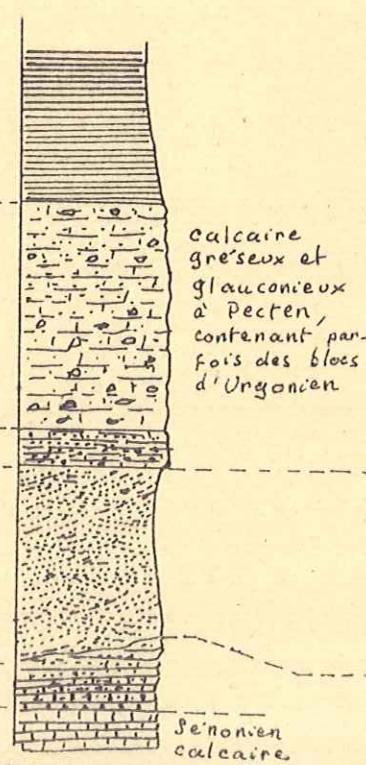 calcaire
gréseux et
glauconieux
à Pecten,
contenant par-
fois des blocs
d'Urgonien
Sénonien
calcaire